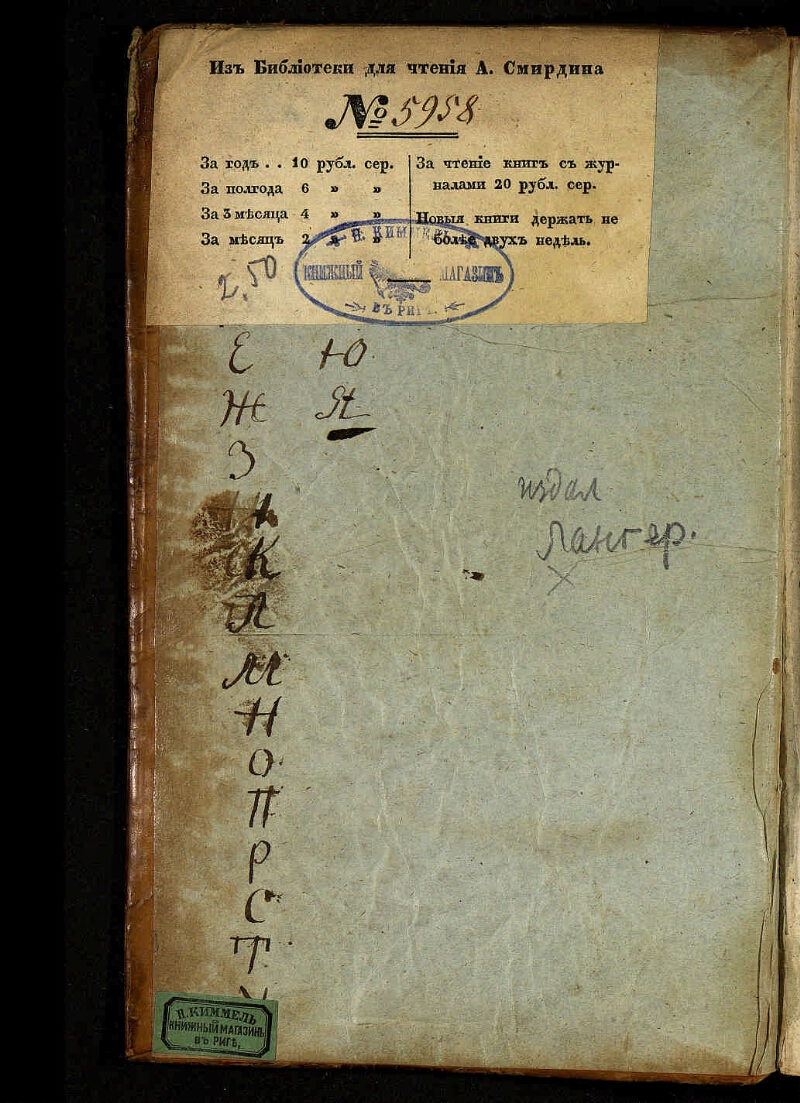 Изъ Библіотеки для чтенія А. Смирдина
№ 5958
За годъ . . 10 рубл. сер.
За полгода 6 » »
За 3 мѣсяца 4 » »
За мѣсяцъ 2 » »
За чтеніе книгъ съ жур-
налами 20 рубл. сер.
Новыя книги держать не
болѣе двухъ недѣль.
КИММЕЛЬ
КНИЖНЫЙ МАГАЗИНЪ
ВЪ РИГѢ
2.50
Е Ю
Ж Я
З
К
Л
М
Н
О
П
Р
С
Т
издал
Лангер.
Н. КИММЕЛЬ
КНИЖНЫЙ МАГАЗИНЪ
ВЪ РИГѢ,